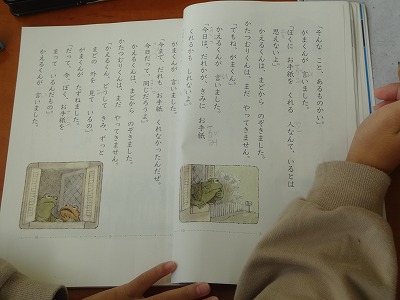 「そんな こと あるものかい。」
がまくんが 言いました。
「ぼくに お手紙を くれる 人なんて、いるとは
思えないよ。」
かえるくんは、まどから のぞきました。
かたつむりくんは、まだ やってきません。
「でもね、がまくん。」
かえるくんが 言いました。
「今日は、だれかが、きみに お手紙
くれるかも しれないよ。」
がまくんが 言いました。
「今まで、だれも お手紙 くれなかったんだぜ。
今日だって、同じだろうよ。」
かえるくんは、まどから のぞきました。
かたつむりくんは、まだ やってきません。
「かえるくん、どうして、きみ、ずっと
まどの 外を 見て いるの。」
がまくんが たずねました。
「だって、今、ぼく、お手紙を
まって いるんだもの。」
かえるくんが 言いました。